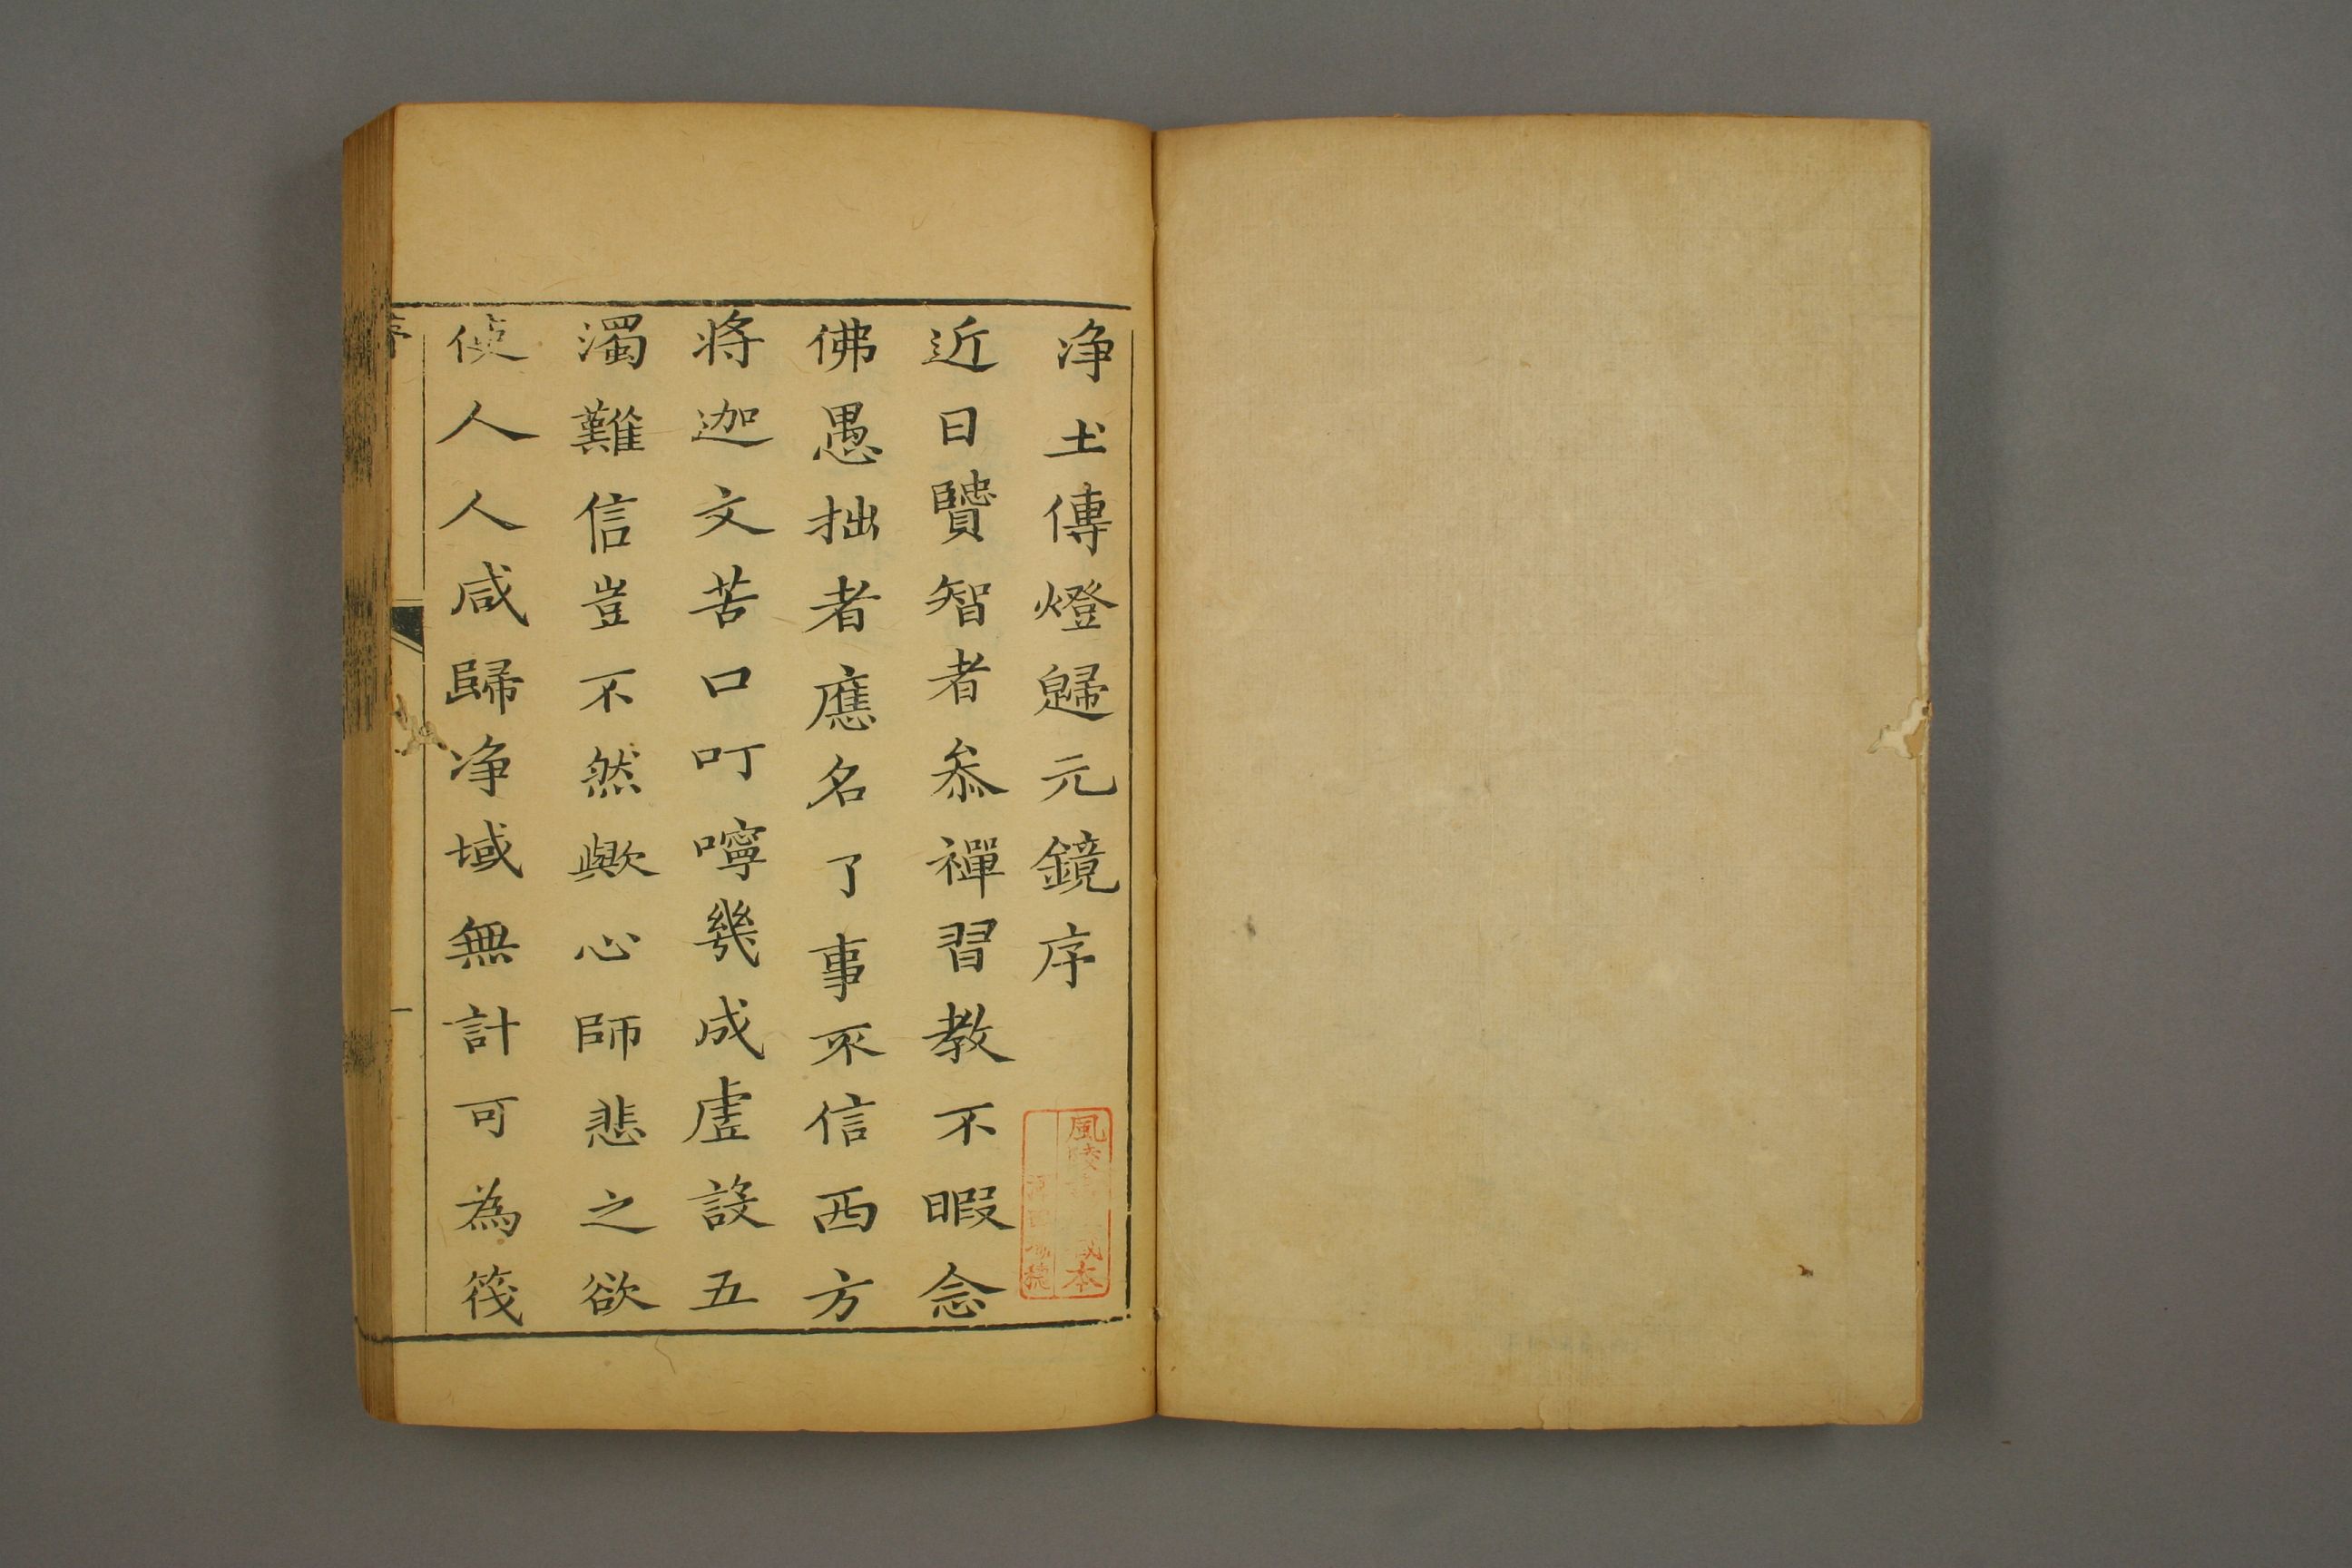 淨土傳燈歸元鏡序
近日贒智者叅禪習教不暇念
佛愚拙者應名了事不信西方
將迦文苦口叮嚀幾成虛設五
濁難信豈不然歟心師悲之欲
使人人咸歸淨域無計可為筏
序
一
風陵
藏本